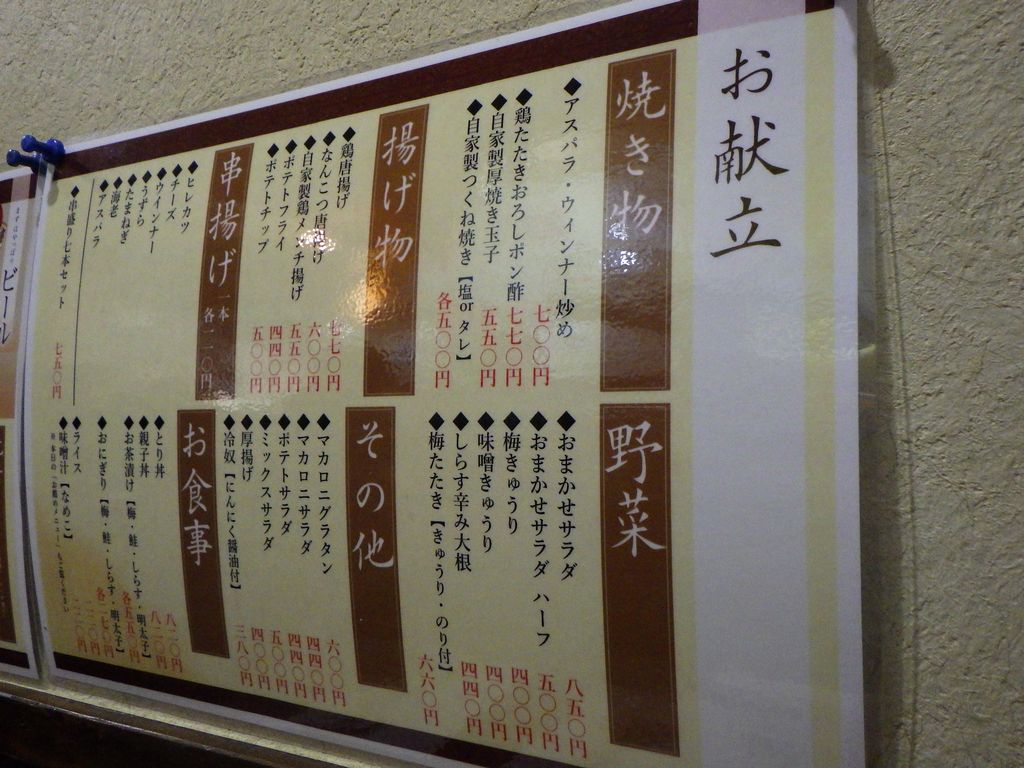 お献立
焼き物
◆アスパラ・ウィンナー炒め 七〇〇円
◆鶏たたきおろしポン酢 七七〇円
◆自家製厚焼き玉子 五五〇円
◆自家製つくね焼き【塩orタレ】 各五〇〇円
揚げ物
◆鶏唐揚げ 七七〇円
◆なんこつ唐揚げ 六〇〇円
◆自家製鶏メンチ揚げ 五五〇円
◆ポテトフライ 四四〇円
◆ポテトチップ 五〇〇円
串揚げ 一本 各一一〇円
◆ヒレカツ
◆チーズ
◆ウインナー
◆うずら
◆たまねぎ
◆海老
◆アスパラ
◆串盛り七本セット 七五〇円
野菜
◆おまかせサラダ 八五〇円
◆おまかせサラダ ハーフ 五〇〇円
◆梅きゅうり 四〇〇円
◆味噌きゅうり 四〇〇円
◆しらす辛み大根 四四〇円
◆梅たたき【きゅうり・のり付】 六六〇円
その他
◆マカロニグラタン 六〇〇円
◆マカロニサラダ 四四〇円
◆ポテトサラダ 四四〇円
◆ミックスサラダ 五〇〇円
◆厚揚げ 四〇〇円
◆冷奴【にんにく醤油付】 三八〇円
お食事
◆とり丼 八二〇円
◆親子丼 八二〇円
◆お茶漬け【梅・鮭・しらす・明太子】 各五五〇円
◆おにぎり【梅・鮭・しらす・明太子】 各二七〇円
◆ライス 二二〇円
◆味噌汁【なめこ】 二二〇円
ビール